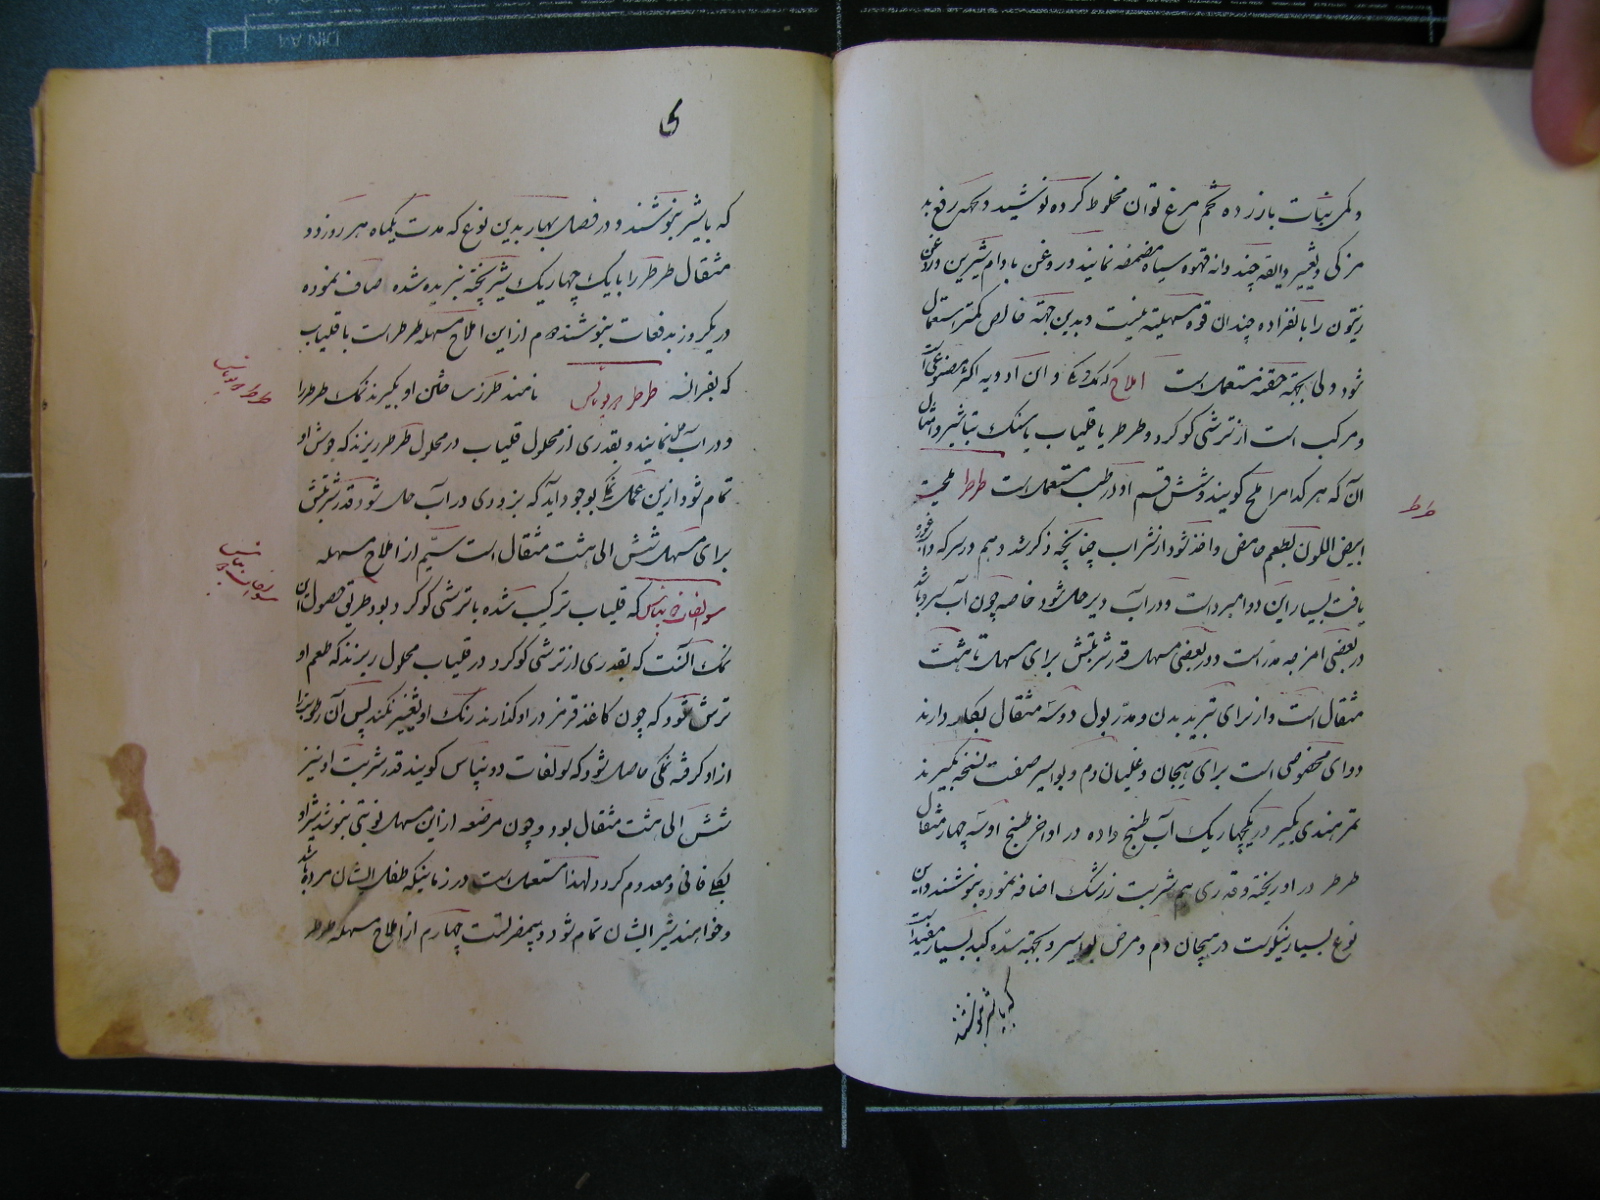 و کمی نبات با زرده تخم مرغ توان مخلوط کرده نوشید و بجهة رفع بد
مزکی و تغییر ذایقه چند دانه قهوه سیاه مضمضه نمایند و روغن بادام شیرین و روغن
زیتون را بانفراده چندان قوه مسهلیته نیست و بدین جهة خالص کمتر استعمال
شود ولی بجهة حقنه مستعمل است املاح و این ادویه اکثر مصنوعی است
و مرکب است از ترشی کوکرد و طرطر یا قلیاب یا سنک تباشیر و امثال
آن که هر کدام را ملح کویند و شش قسم او در طب مستعمل است طرطر ملحیست
ابیض اللون بطعم حامض و اخذ شود از شراب چنانچه ذکر شد و هم در سرکه و آب غوره
یافت بسیار این دوا مبرد است و در آب دیر حل شود خاصه چون آب سرد باشد
در بعضی امزجه مدر است و در بعضی مسهل قدر شربتش برای مسهل تا هشت
مثقال است و از برای تبرید بدن و مدر بول دو سه مثقال بکار دارند
دوای مخصوصی است برای هیجان و غلیان دم و بواسیر صفت نسخه بگیرند
تمر هندی بکیر در یکچهاریک آب طبخ داده در اواخر طبخ او سه چهار مثقال
طرطر در او ریخته و قدری هم شربت زرشک اضافه نموده بنوشند و این
نوع بسیار نیکوست در هیجان دم و مرض بواسیر و بجهة سده کبد بسیار مفید است
که با شیر بنوشند
طرطر
که با شیر بنوشند و در فصل بهار بدین نوع که مدت یکماه هر روز دو
مثقال طرطر را با یک چهاریک شیر پخته بنبریده شده صاف نموده
در یکروز بدفعات بنوشند دوم از این املاح مسهله طرطر است با قلیاب
که بفرانسه طرطر نامند طرز ساختن او بگیرند نمک طرطر را
و در آب حل نمایند و بقدری از محلول قلیاب در محلول طرطر ریزند که جوش او
تمام شود ازین عمل نمکی بوجود آید که بزودی در آب حل شود قدر شربتش
برای مسهل شش الی هشت مثقال است سیم از املاح مسهله
که قلیاب ترکیب شده با ترشی کوکرد بود طریق حصول این
نمک آنست که بقدری از ترشی کوکرد در قلیاب محلول ریزند که طعم او
ترش شود که چون کاغذ قرمز در او کذارند رنک او تغییر نکند پس آن رطوبت را
از او کرفته نمکی حاصل شود که سولفات دو پتاس کویند قدر شربت او نیز
شش الی هشت مثقال بود و چون مرضعه از این مسهل نوبتی بنوشد شیر او
بکلی فانی و معدوم کردد لهذا مستعمل است در زمانیکه طفل ایشان مرده باشد
و خواهند شیر ایشان تمام شود و بیمضرتست چهارم از املاح مسهله طرطر